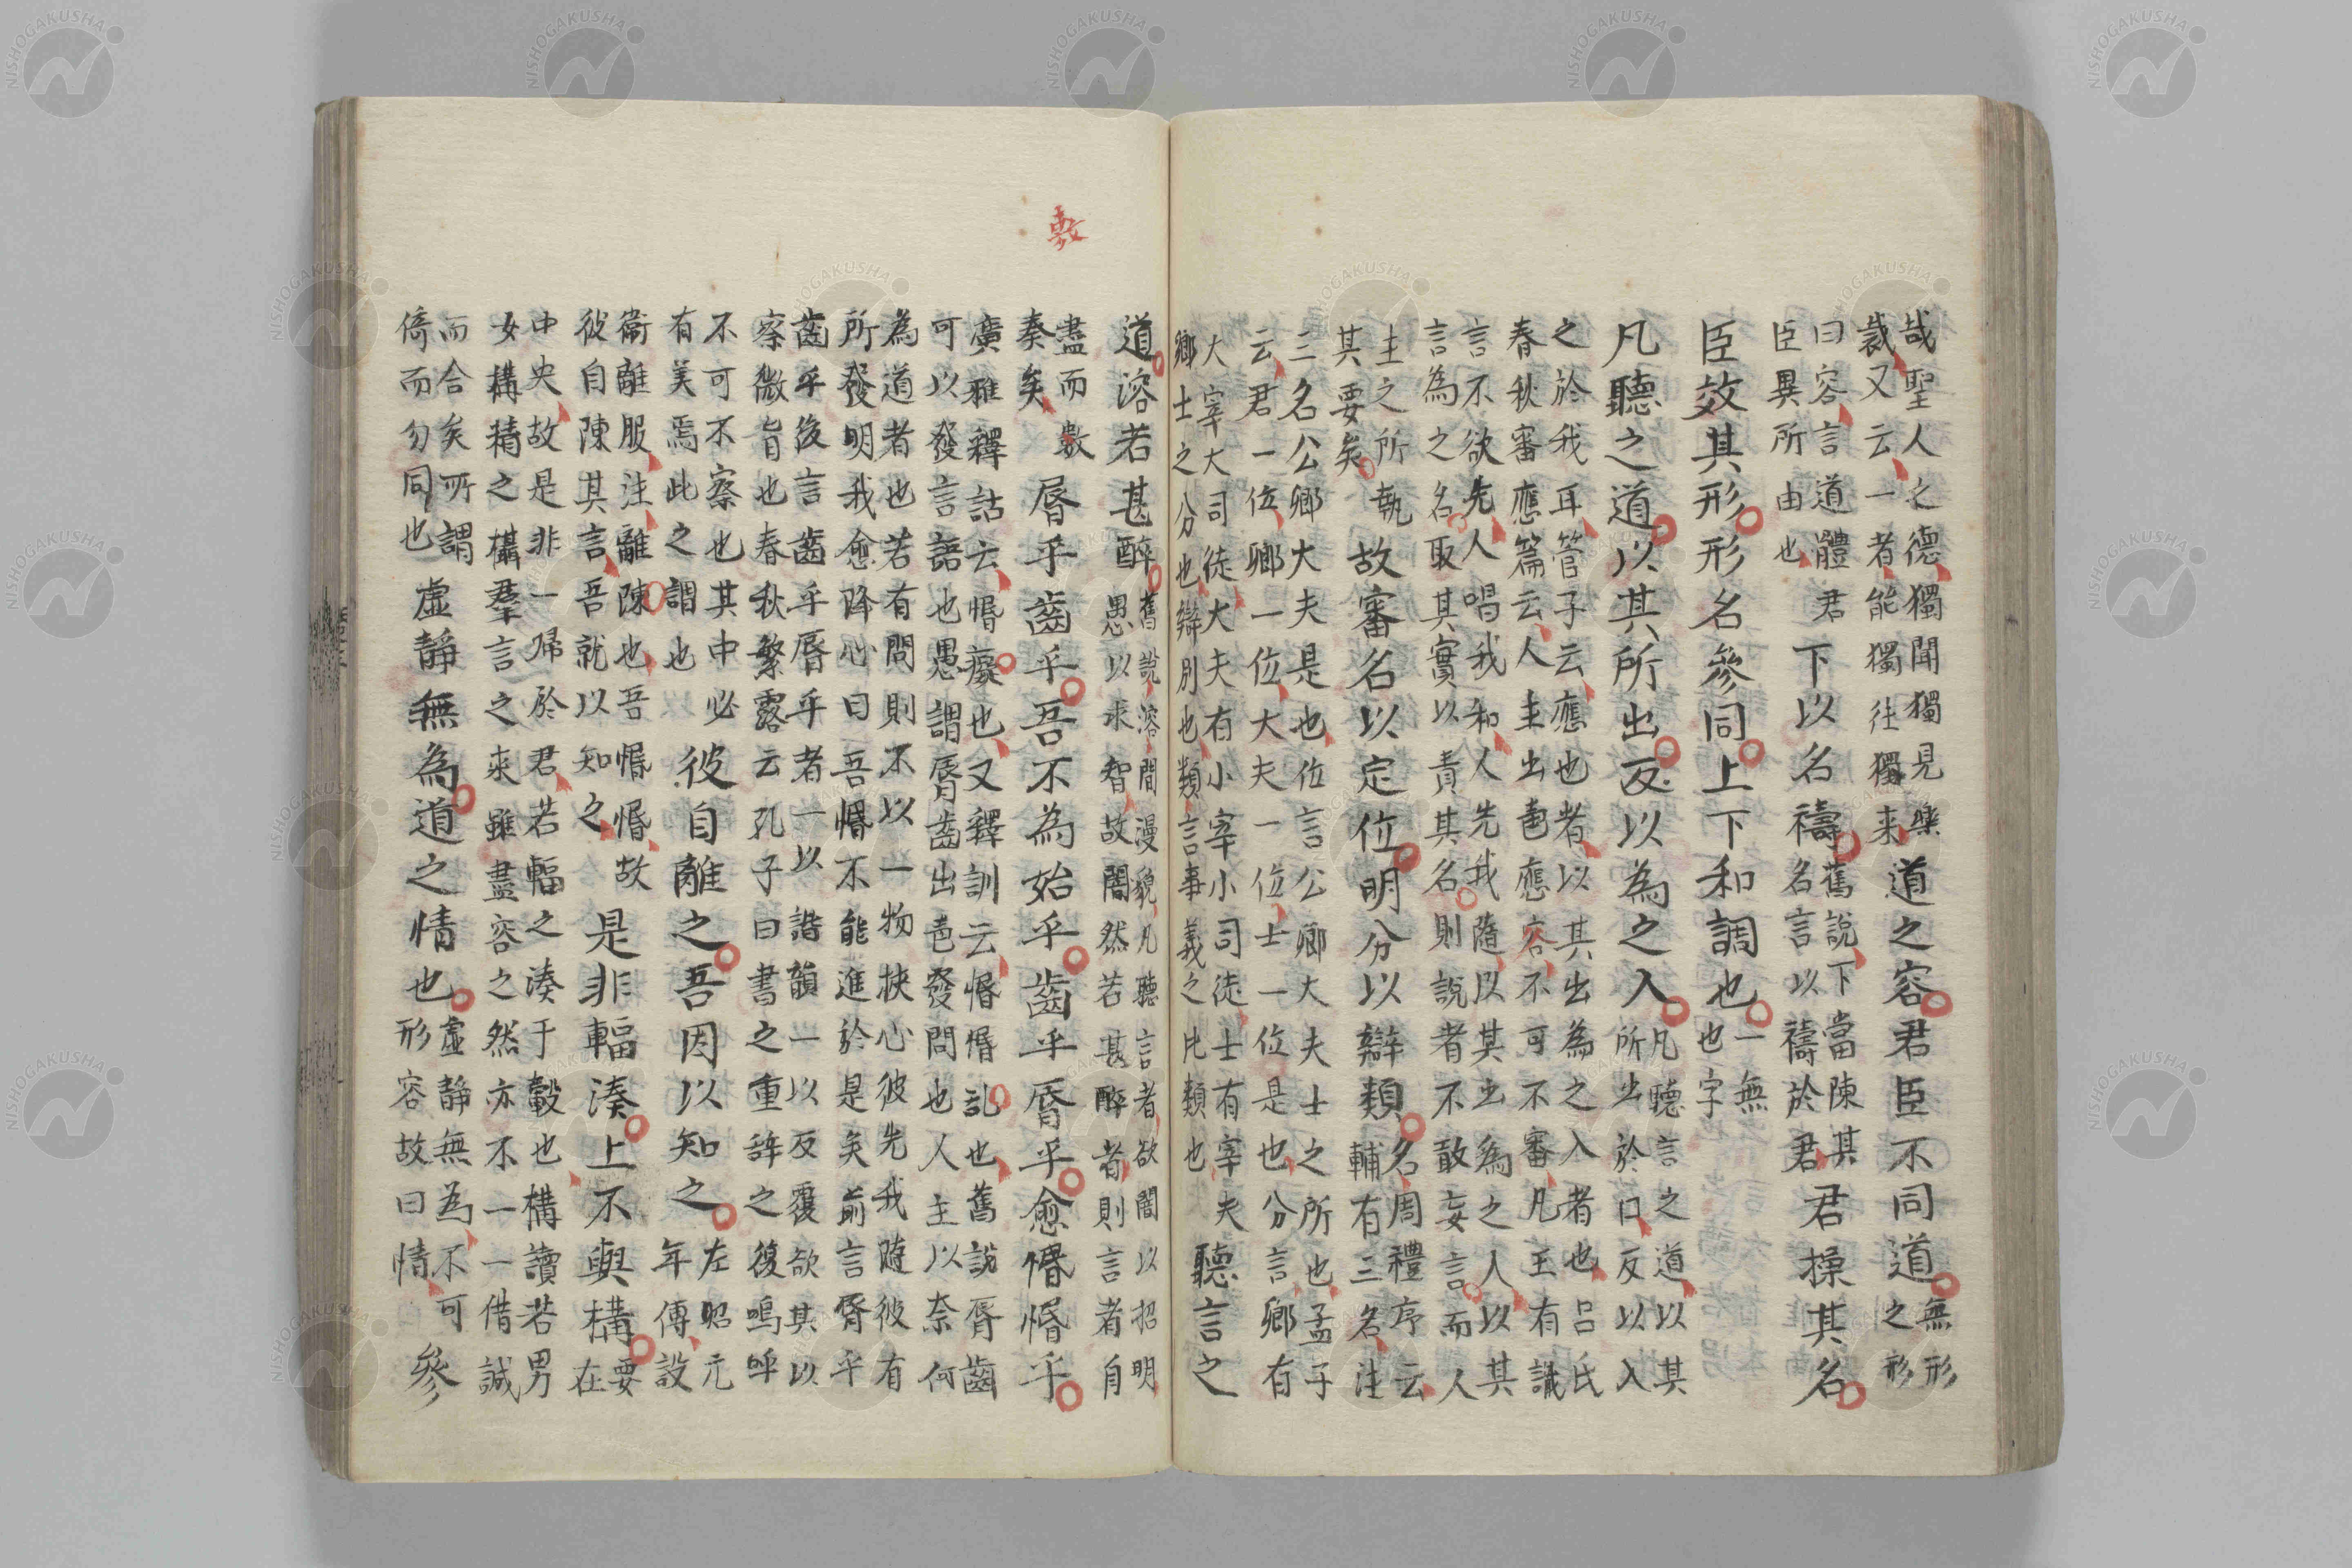 哉聖人之德獨聞獨見樂
裁又云一者能獨往獨来
道之容君臣不同道
無形
之形
曰容言道體君
臣異所由也
下以名禱
舊說下當陳其
名言以禱於君
君操其名
臣效其形形名參同上下和調也
一無
也字
凡聽之道以其所出反以為之入
凡聽言之道以其
所出於口反以入
之於我耳管子云應也者以其出為之入者也吕氏
春秋審應篇云人主出聲應容不可不審凡王有識
言不欲先人唱我和人先我隨以其出為之人以其
言為之名取其實以責其名則說者不敢妄言而人
主之所執
其要矣
故審名以定位明分以辯類
名周禮序云
輔有三名注
三名公卿大夫是也位言公卿大夫士之所也孟子
云君一位卿一位大夫一位士一位是也分言卿有
大宰大司徒大夫有小宰小司徒士有宰夫
鄉士之分也辯別也類言事義之比類也
聽言之
道溶若甚醉
舊說溶間漫貌凡聽言者欲闇以招明
愚以求智故闇然若甚醉者則言者自
盡而數
奏矣
脣乎齒乎吾不為始乎齒乎脣乎愈惽惽乎
廣雅釋詁云惽癡也又釋訓云惽惽乱也舊說脣齒
可以發言語也愚謂脣齒出聲發問也人主以奈何
為道者也若有問則不以一物挾心彼先我随彼有
所發明我愈降心曰吾惽不能進於是矣前言脣乎
齒乎後言齒乎脣乎者一以諧韻一以反覆欲其以
察微旨也春秋繁露云孔子曰書之重辞之復嗚呼
不可不察也其中必
有美焉此之謂也
彼自離之吾因以知之
左昭元
年傳設
衞離服注離陳也吾惽惽故
彼自陳其言吾就以知之
是非輻湊上不與構
要
在
中央故是非一帰於君若輻之湊于轂也構讀若男
女構精之構羣言之来雖盡容之然亦不一一借誠
而合矣所謂
倚而勿同也
虛静無為道之情也
虚静無為不可
形容故曰情
參